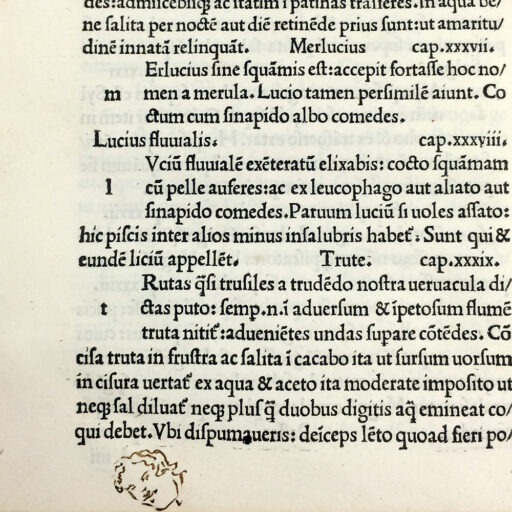 des: admiscebisq; ac itatim i patinas trāsferes. In aqua be/
ne salita per noctē aut diē retinēde prius sunt: ut amaritu/
dinē innatā relinquāt. Merlucius cap.xxxvii.
Erlucius sine squāmis est: accepit fortasse hoc no/
m men a merula. Lucio tamen persimilē aiunt. Co
ctum cum sinapido albo comedes.
Lucius fluuialis. cap.xxxviii.
Vciū fluuialē exēteratū elixabis: cocto squāmam
l cū pelle auferes: ac ex leucophago aut aliato aut
sinapido comedes. Paruum luciū si uoles assato:
hic piscis inter alios minus insalubris habet᷑: Sunt qui &
eundē liciū appellēt. Trute: cap.xxxix.
Rutas q̄si trusiles a trudēdo nostra ueruacula di/
t ctas puto: semp.n.ī aduersum & īpetosum flumē
truta nitit᷑: adueniētes undas supare cōtēdes. Cō
cisa truta in frustra ac salita ī cacabo ita ut sursum uorsum
in cisura uertat᷑ ex aqua & aceto ita moderate imposito ut
neq; sal diluat᷑ neq; plus q̄ duobus digitis aq̄ emineat co/
qui debet. Vbi dispumaueris: deīceps lēto quoad fieri po/